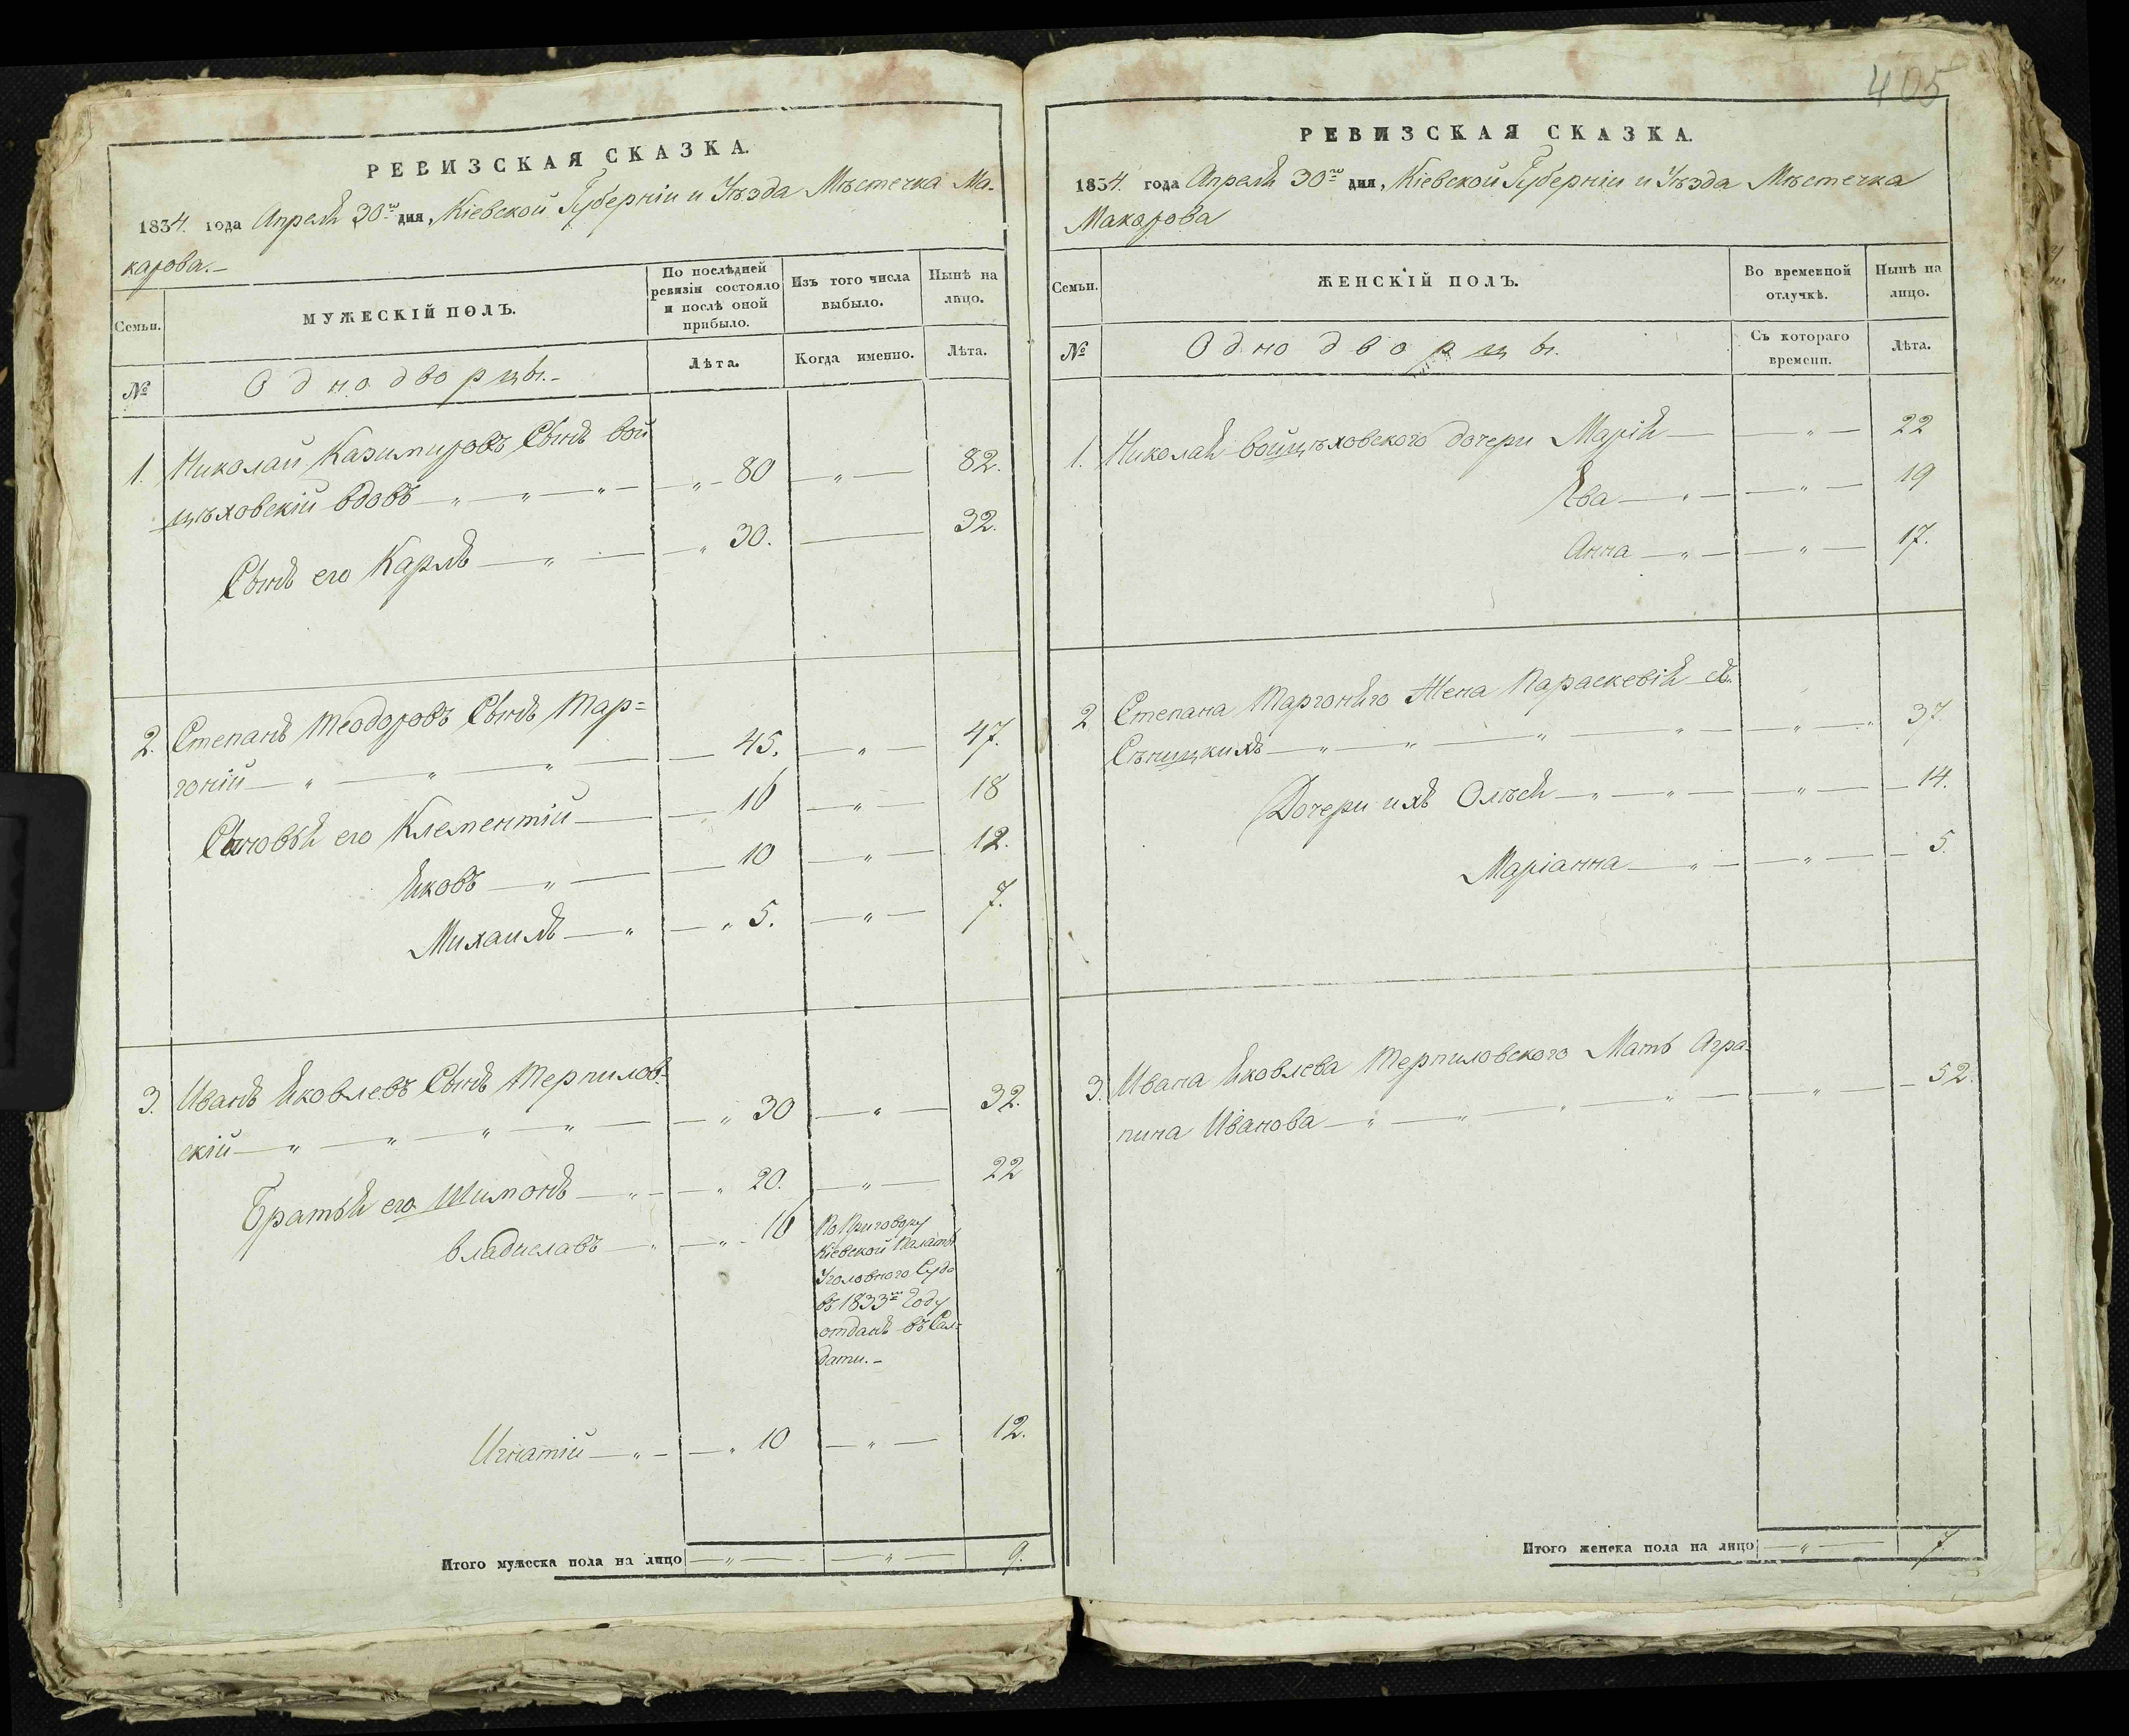 405
РЕВИЗСКАЯ СКАЗКА.
1834. года Апреля 30го дня, Кіевской Губерніи и Уѣзда Мѣстечка Ма-
карова.-
Семьи.
МУЖЕСКІЙ ПОЛЪ.
По послѣдней ревизіи состояло и послѣ оной прибыло.
Изъ того числа выбыло.
Нынѣ на лицо.
№
Однодворцы.-
Лѣта.
Когда именно.
Лѣта.
1. Николай Казимировъ Сынъ Вой
цѣховскій вдовъ — „ — „ — „ — „ - 80 — „ — 82.
Сынъ его Карлъ — „ — „ 30. — 32.
2. Степанъ Теодоровъ Сынъ Тар=
гоній — „ — „ — „ — 45. — „ — 47.
Сыновья его Клементій — 16 — „ — 18
Яковъ — „ — 10 — „ — 12.
Михаилъ — „ — „ 5. — „ — 7.
3. Иванъ Яковлевъ Сынъ Терпилов-
скій — „ — „ — „ — „ — „ 30 — „ — 32.
Братья его Шимонъ — „ — „ 20. — „ — 22
Владиславъ — „ — „ - 16
По Приговору
Кіевской Палаты
Уголовного Суда
въ 1833мъ Году
отданъ въ Сал=
даты.-
Игнатій — „ — „ 10 — „ — 12.
Итого мужеска пола на лицо — „ — — „ — 9.
РЕВИЗСКАЯ СКАЗКА.
1834. года Апреля 30го дня, Кіевской Губерніи и Уѣзда Мѣстечка
Макарова
Семьи.
ЖЕНСКІЙ ПОЛЪ.
Во временной отлучкѣ.
Нынѣ на лицо.
№
Однодворцы.
Съ котораго времени.
Лѣта.
1. Николая Войцѣховского дочери Марія — — „ — 22
Ева — „ — — „ — 19
Анна — „ — — „ — 17.
2 Степана Таргонѣго Жена Параскевія съ
Сѣницкихъ — „ — „ — „ — „ — — „ — 37
Дочери ихъ Олѣся — „ — „ — — „ — 14.
Маріанна — „ — — „ — 5.
3. Ивана Яковлева Терпиловского Мать Агра-
пина Иванова — „ — „ — „ — „ — — „ — 52.
Итого женска пола на лицо — „ — 7.